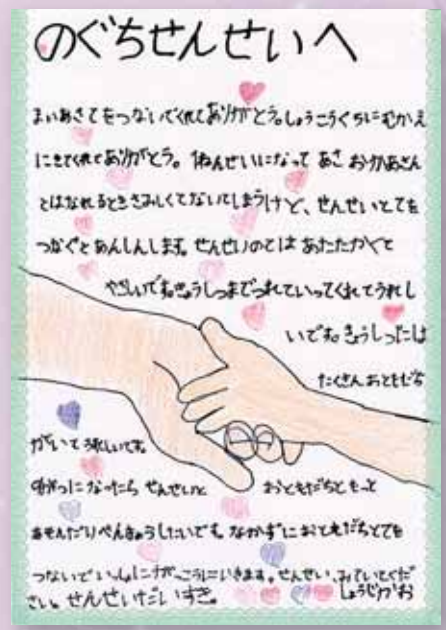 のぐちせんせいへ
まいあさてをつないでくれてありがとう。しょうこうぐちにむかえ
にきてくれてありがとう。1ねんせいになって あさ おかあさん
とはなれるときさみしくてないてしまうけど、せんせいとてを
つなぐとあんしんします。せんせいのては あたたかくて
やさしいです。きょうしつまでつれていってくれてうれし
いです。きょうしつには
たくさん おともだち
がいて うれしいです。
がつになったら せんせいと おともだちともっと
あそんだりべんきょうしたいです。なかずにおともだちとてを
つないでいっしょにがっこうにいきます。せんせい、みていてくだ
さい。せんせいだいすき。